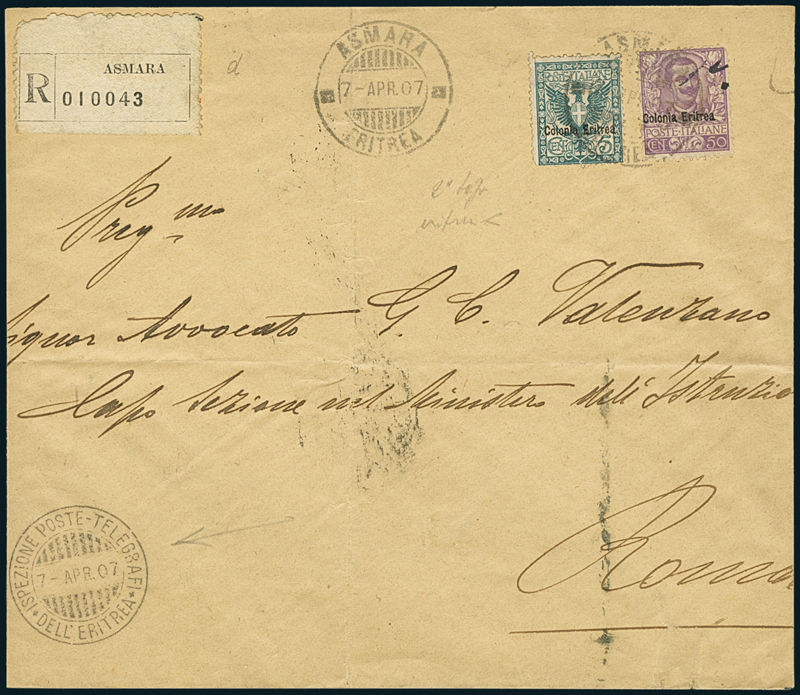 ASMARA
R
010043
d
ASMARA
7-APR.07
ERITREA
POSTE ITALIANE
Colonia Eritrea
CEN. 5
Colonia Eritrea
POSTE·ITALIANE
CEN 50
Preg mo
Signor Avvocato G. C. Valenzano
Capo Sezione nel Ministero dell'Istruzio
Roma
ISPEZIONE POSTE-TELEGRAFI
7-APR.07
DELL'ERITREA